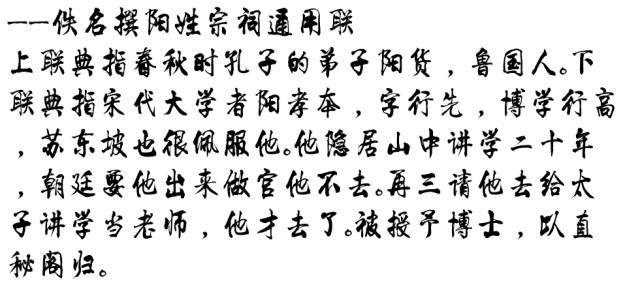 ——佚名撰阳姓宗祠通用联
上联典指春秋时孔子的弟子阳货，鲁国人。下
联典指宋代大学者阳孝本，字行先，博学行高
，苏东坡也很佩服他。他隐居山中讲学二十年
，朝廷要他出来做官他不去。再三请他去给太
子讲学当老师，他才去了。被授予博士，以直
秘阁归。